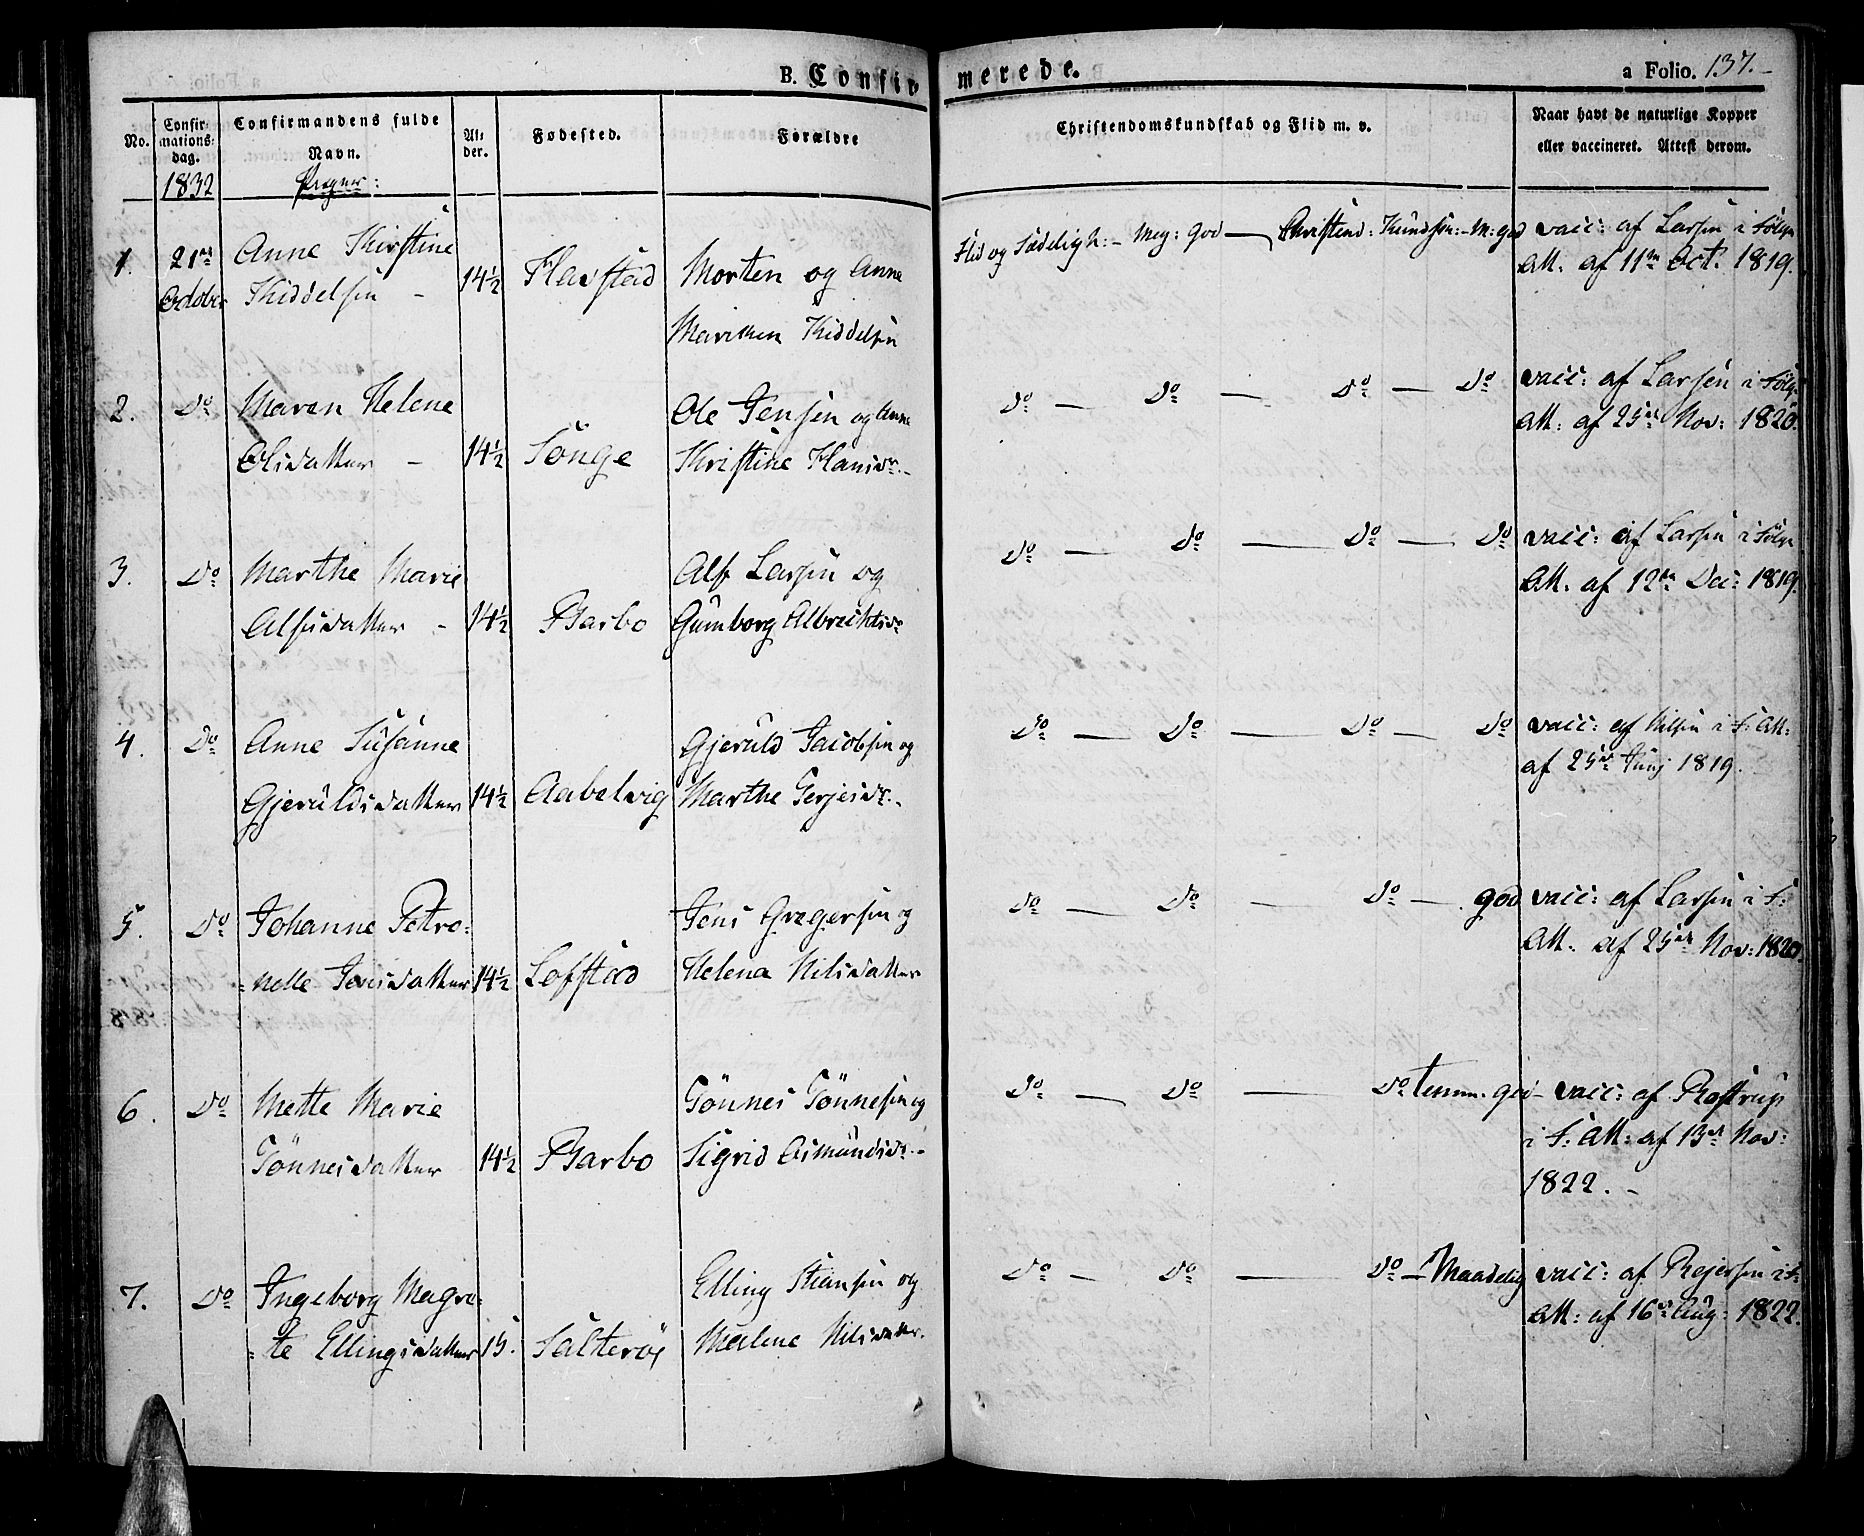 B. Confirmerede.
a Folio. 137.
No.
Confirmationsdag.
Confirmandens fulde Navn.
Alder.
Fødested.
Forældre
Christendomskundskab og Flid m. v.
Naar havt de naturlige Kopper eller vaccineret. Attest derom.
1832
1. 21de Anne Kirstine 14½ Flavstad Morten og Anne Flid og Sædeligh: - Meg: god — Christend: Kundsk: - M: god vacc: af Larsen i Følge
October Kiddelsen - Mariken Kiddelsen Att. af 11te Oct. 1819.
2. Do Maren Helene Ole Jensen og Anne Do — Do — Do — Do vacc: af Larsen i Følge
Olesdatter - 14½ Songe Kristine Hansdr. - Att: af 25de Nov: 1820.
3. Do Marthe Marie Alf Larsen og Do — Do — Do — Do vacc: af Larsen i Følge
Alfsdatter - 14½ Barbo Gumborg Albrechtsdr Att. af 12te Dec: 1819.
4. Do Anne Susanne Gjeruld Jacobsen og Do — Do — Do — Do vacc: af Nilsen i F: Att:
Gjeruldsdatter 14½ Aabelvig Marthe Terjesdr. - af 25de Junj 1819.
5. Do Johanne Petro= Jens Gregersen og Do — Do — Do — god vacc: af Larsen i F:
=nelle Jensdatter 14½ Lofstad Helena Nilsdatter Att. af 25de Nov: 1820.
6. Do Mette Marie Tönnes Tönnesen og Do — Do — Do temm. god - vacc: af Rostrup
Tönnesdatter 14½ Barbo Sigrid Asmundsdr. - i F. Att: af 13de Nov:
1822. -
7. Do Ingeborg Magre= Elling Stiansen og Do — Do — Do — Maadelig vacc: af Rejersen i F:
=te Ellingsdatter 15. Salterøe Malene Nilsdatter. Att: af 16de Aug: 1822.